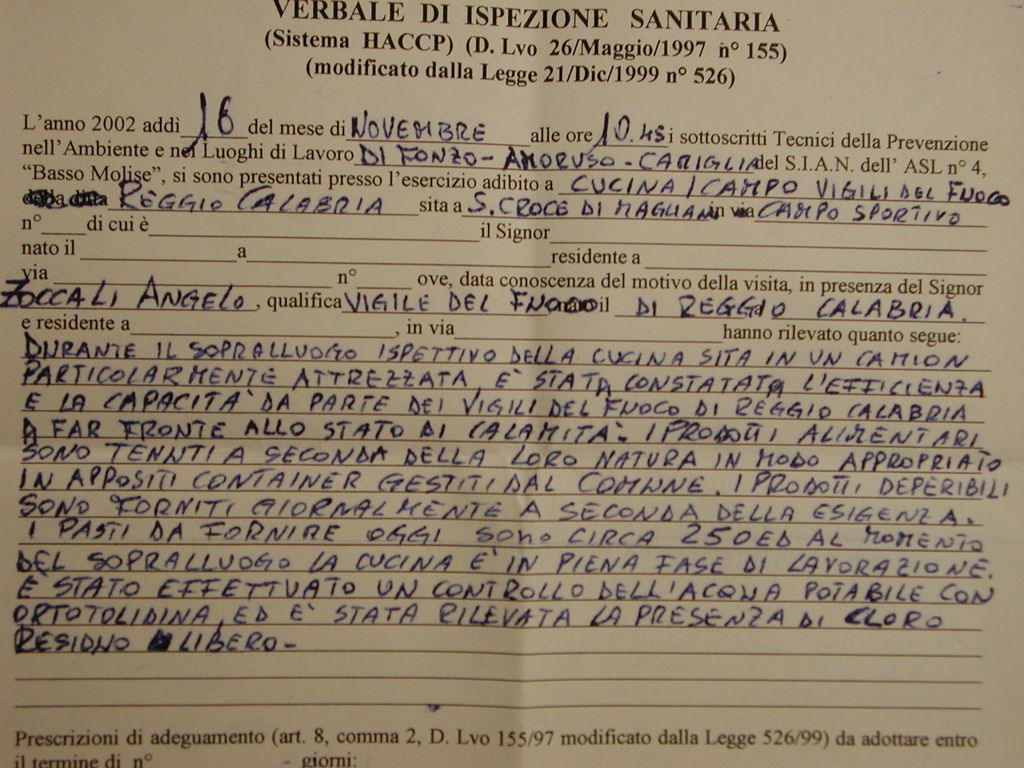 VERBALE DI ISPEZIONE SANITARIA
(Sistema HACCP) (D. Lvo 26/Maggio/1997 n° 155)
(modificato dalla Legge 21/Dic/1999 n° 526)
L'anno 2002 addì 16 del mese di NOVEMBRE alle ore 10.45 i sottoscritti Tecnici della Prevenzione
nell'Ambiente e nei Luoghi di Lavoro DI FONZO - AMORUSO - CARIGLIA del S.I.A.N. dell' ASL n° 4,
"Basso Molise", si sono presentati presso l'esercizio adibito a CUCINA / CAMPO VIGILI DEL FUOCO
REGGIO CALABRIA sita a S. CROCE DI MAGLIANO in via CAMPO SPORTIVO
n° di cui è il Signor
nato il a residente a
via n° ove, data conoscenza del motivo della visita, in presenza del Signor
ZOCCALI ANGELO, qualifica VIGILE DEL FUOCO il DI REGGIO CALABRIA.
e residente a , in via hanno rilevato quanto segue:
DURANTE IL SOPRALLUOGO ISPETTIVO DELLA CUCINA SITA IN UN CAMION
PARTICOLARMENTE ATTREZZATA, E' STATA CONSTATATA L'EFFICIENZA
E LA CAPACITA' DA PARTE DEI VIGILI DEL FUOCO DI REGGIO CALABRIA
A FAR FRONTE ALLO STATO DI CALAMITA'. I PRODOTTI ALIMENTARI
SONO TENUTI A SECONDA DELLA LORO NATURA IN MODO APPROPRIATO
IN APPOSITI CONTAINER GESTITI DAL COMUNE. I PRODOTTI DEPERIBILI
SONO FORNITI GIORNALMENTE A SECONDA DELLA ESIGENZA.
I PASTI DA FORNIRE OGGI SONO CIRCA 250 ED AL MOMENTO
DEL SOPRALLUOGO LA CUCINA E' IN PIENA FASE DI LAVORAZIONE.
E' STATO EFFETTUATO UN CONTROLLO DELL'ACQUA POTABILE CON
ORTOTOLIDINA, ED E' STATA RILEVATA LA PRESENZA DI CLORO
RESIDUO LIBERO -
Prescrizioni di adeguamento (art. 8, comma 2, D. Lvo 155/97 modificato dalla Legge 526/99) da adottare entro
il termine di n° - giorni: